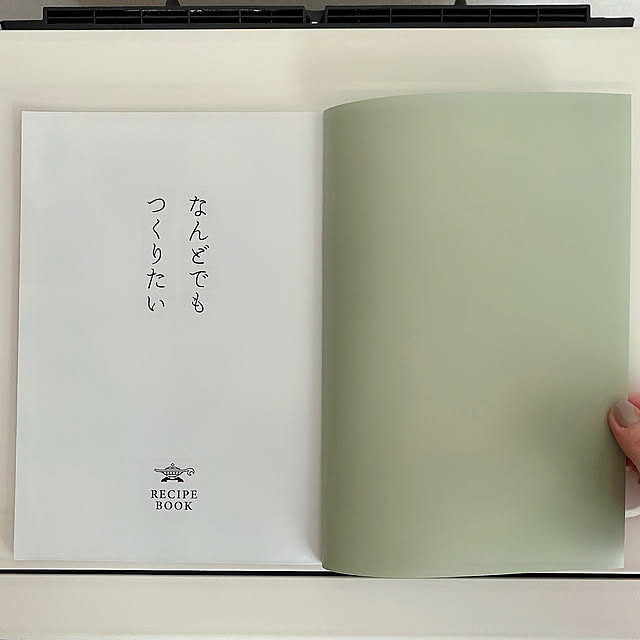 なんどでも
つくりたい
RECIPE
BOOK